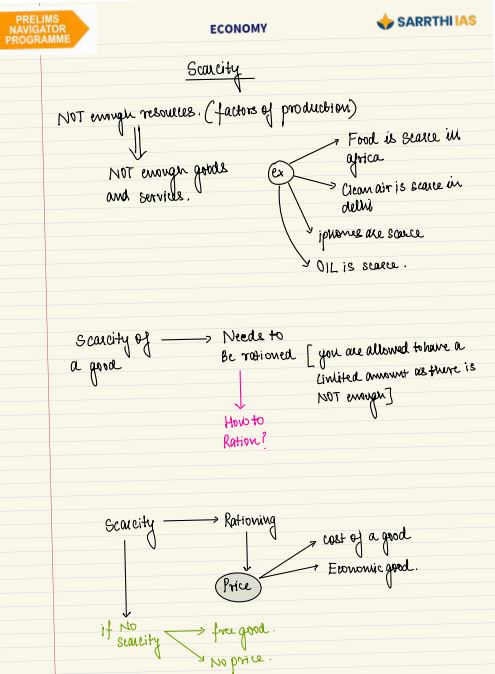 PRELIMS
NAVIGATOR
PROGRAMME
ECONOMY
SARRTHI IAS
Scarcity
NOT enough resources. (factors of production)
NOT enough goods
and services.
ex
Food is scarce in
africa
Clean air is scarce in
delhi
iphones are scarce
OIL is scarce.
Scarcity of
a good
Needs to
Be rationed
[you are allowed to have a
limited amount as there is
NOT enough]
How to
Ration?
Scarcity
Rationing
Price
cost of a good
Economic good.
if No
scarcity
free good.
No price.